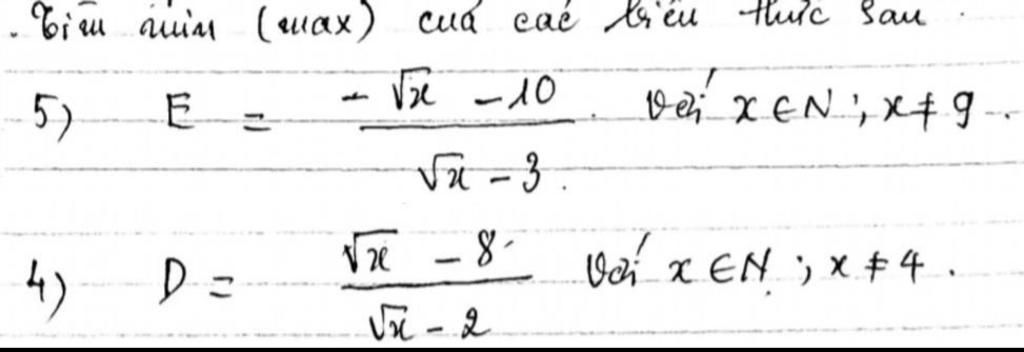 . Tìm min (max) của các biểu thức sau.
5) E = (-√x - 10)/(√x - 3). Với x ∈ N ; x ≠ 9.
4) D = (√x - 8)/(√x - 2) Với x ∈ N ; x ≠ 4.